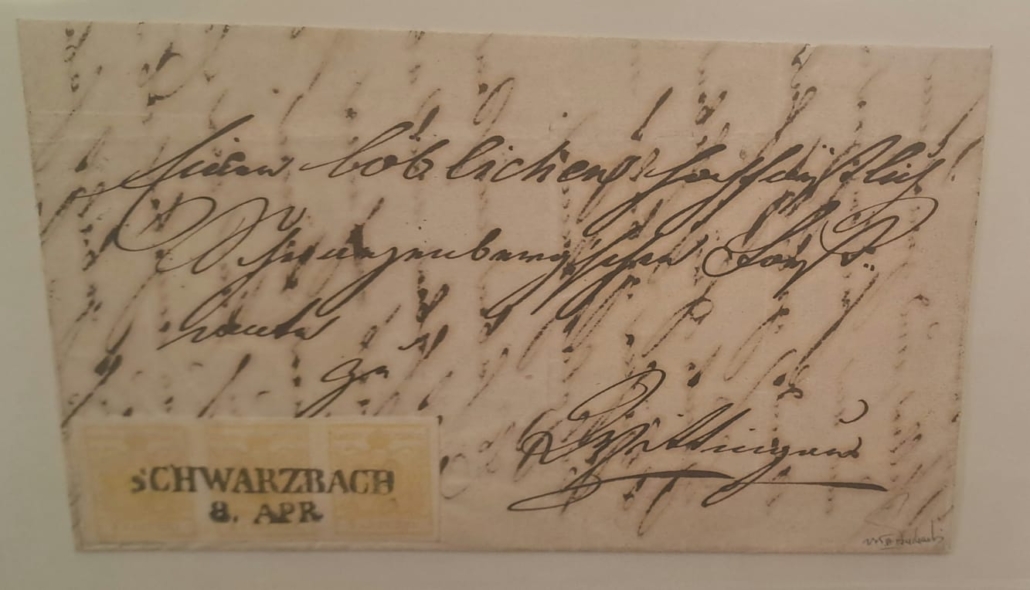 Einem löblichen hochfürstlich
Schwarzenbergschen Forst
amte
zu
Wittingau
SCHWARZBACH
8. APR